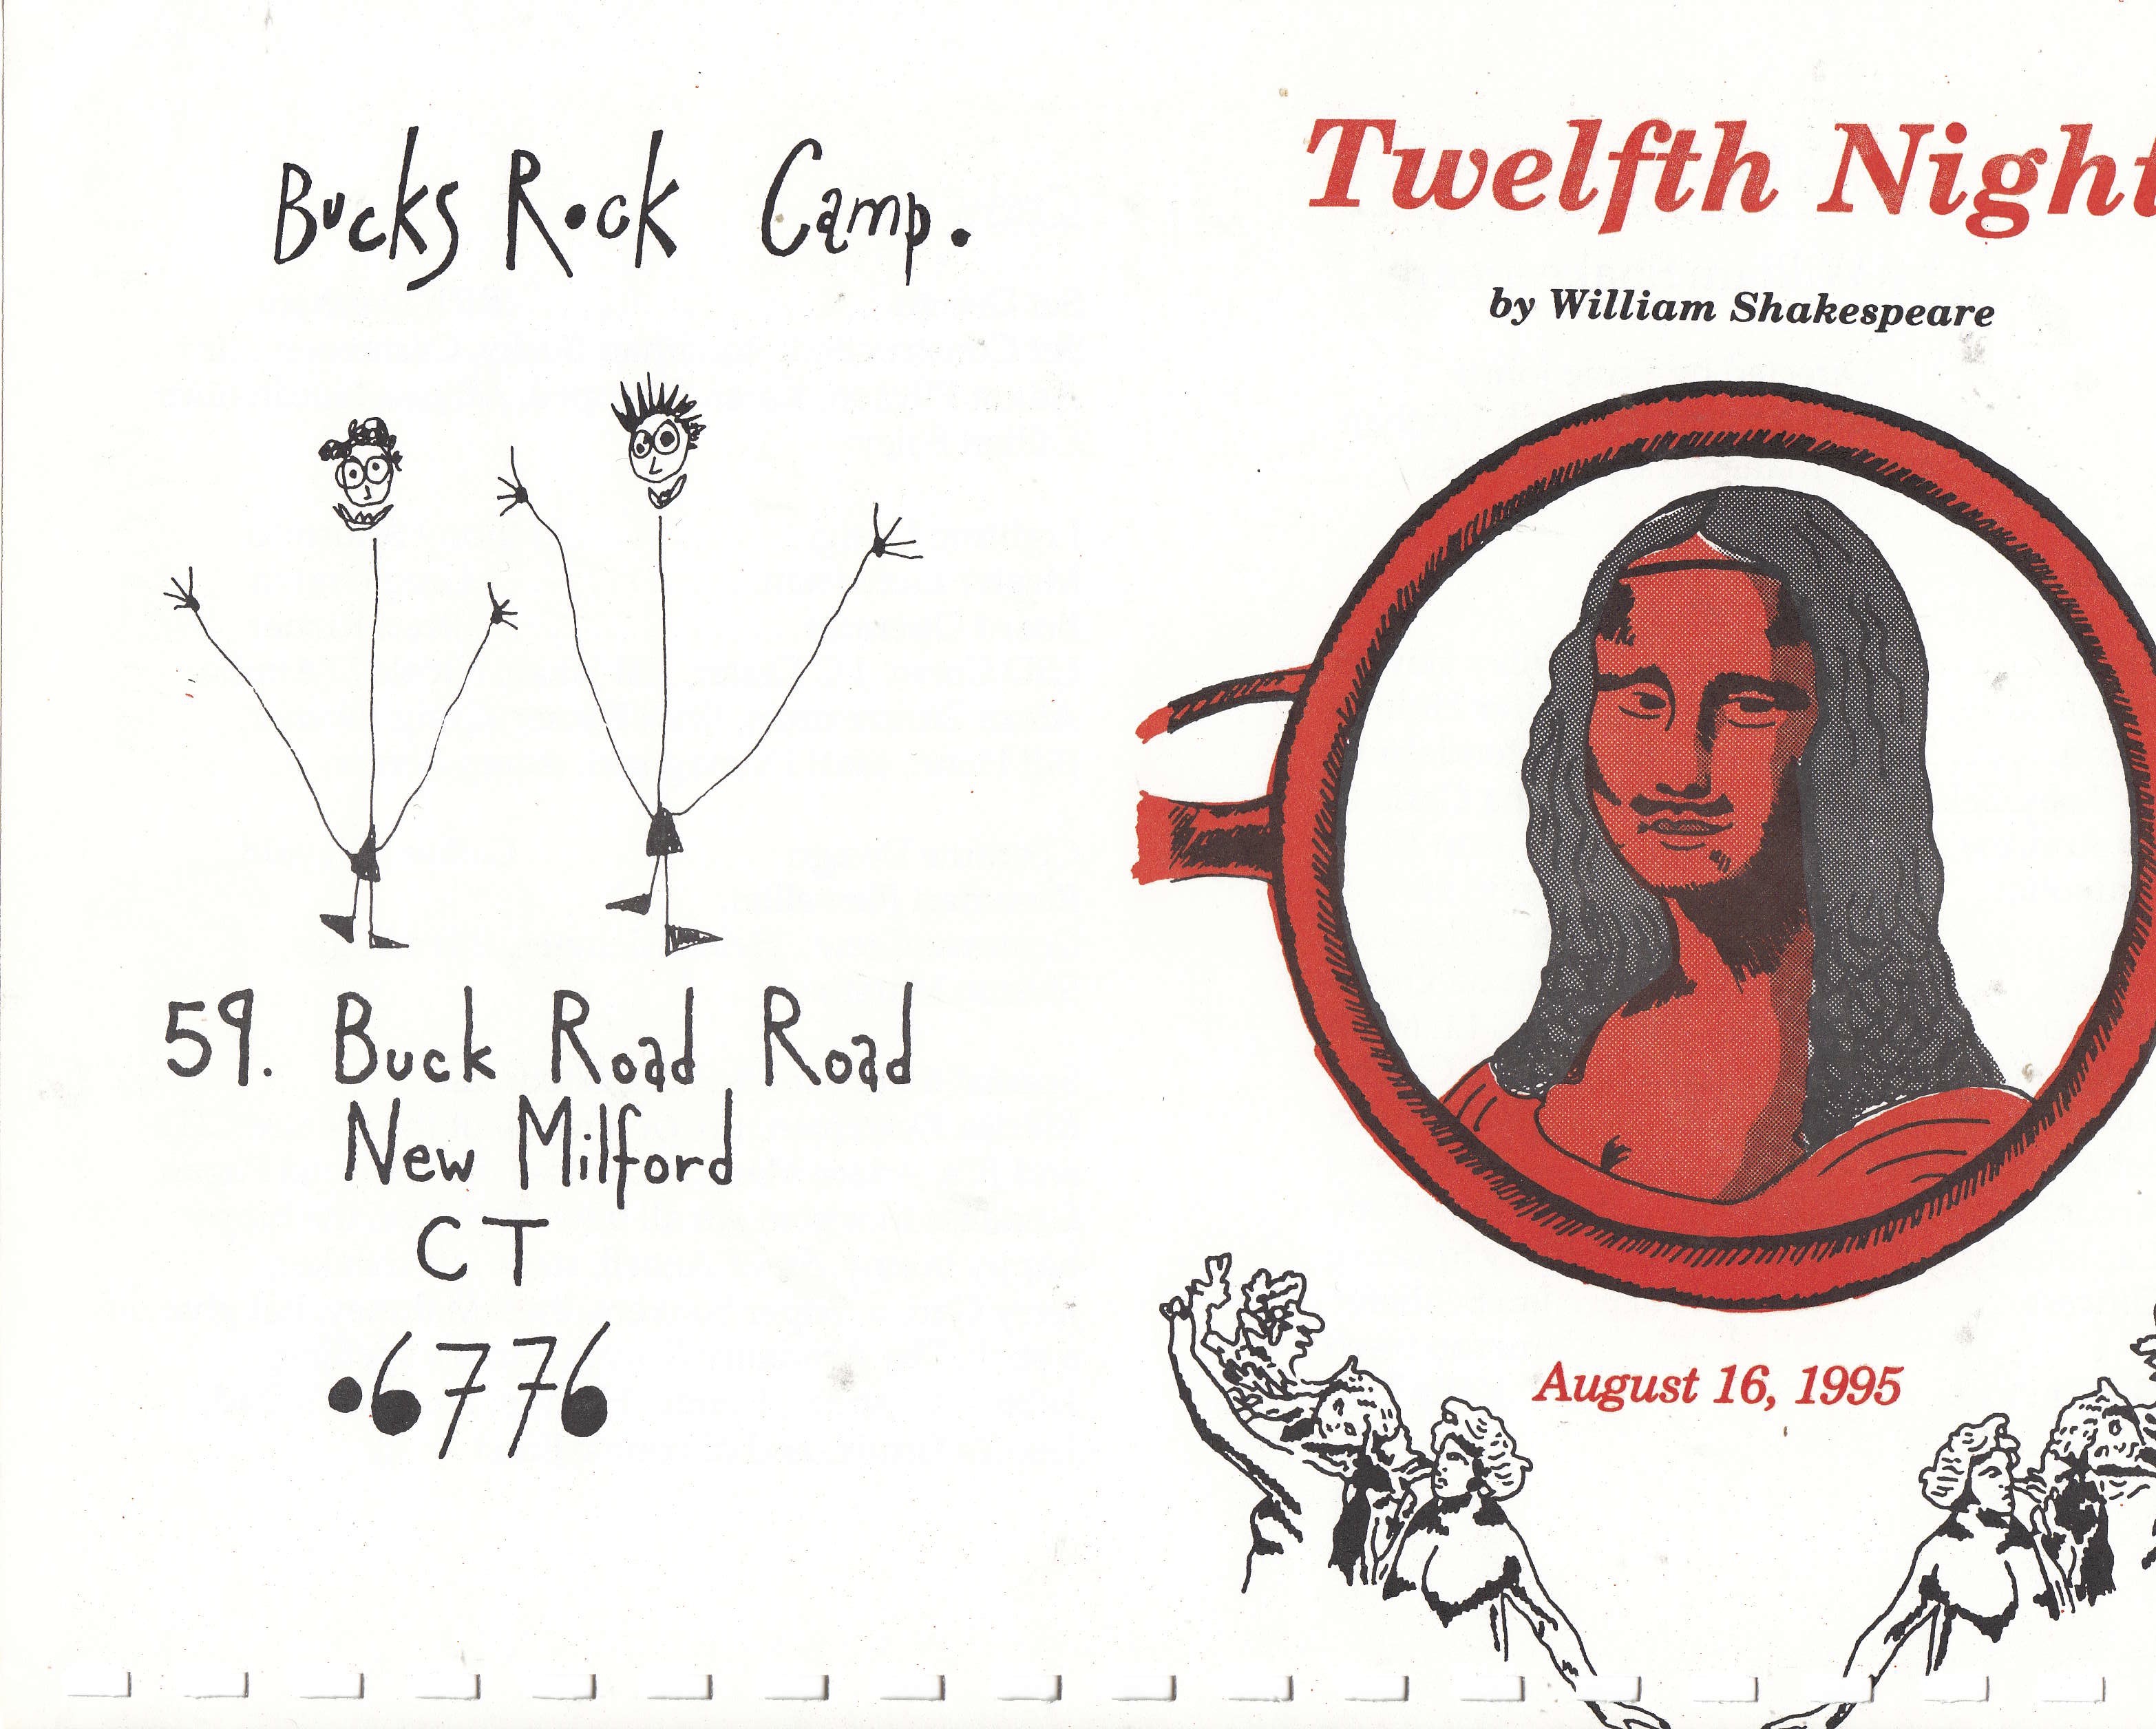 Bucks Rock Camp.
59. Buck Road Road
New Milford
CT
06776
Twelfth Night
by William Shakespeare
August 16, 1995